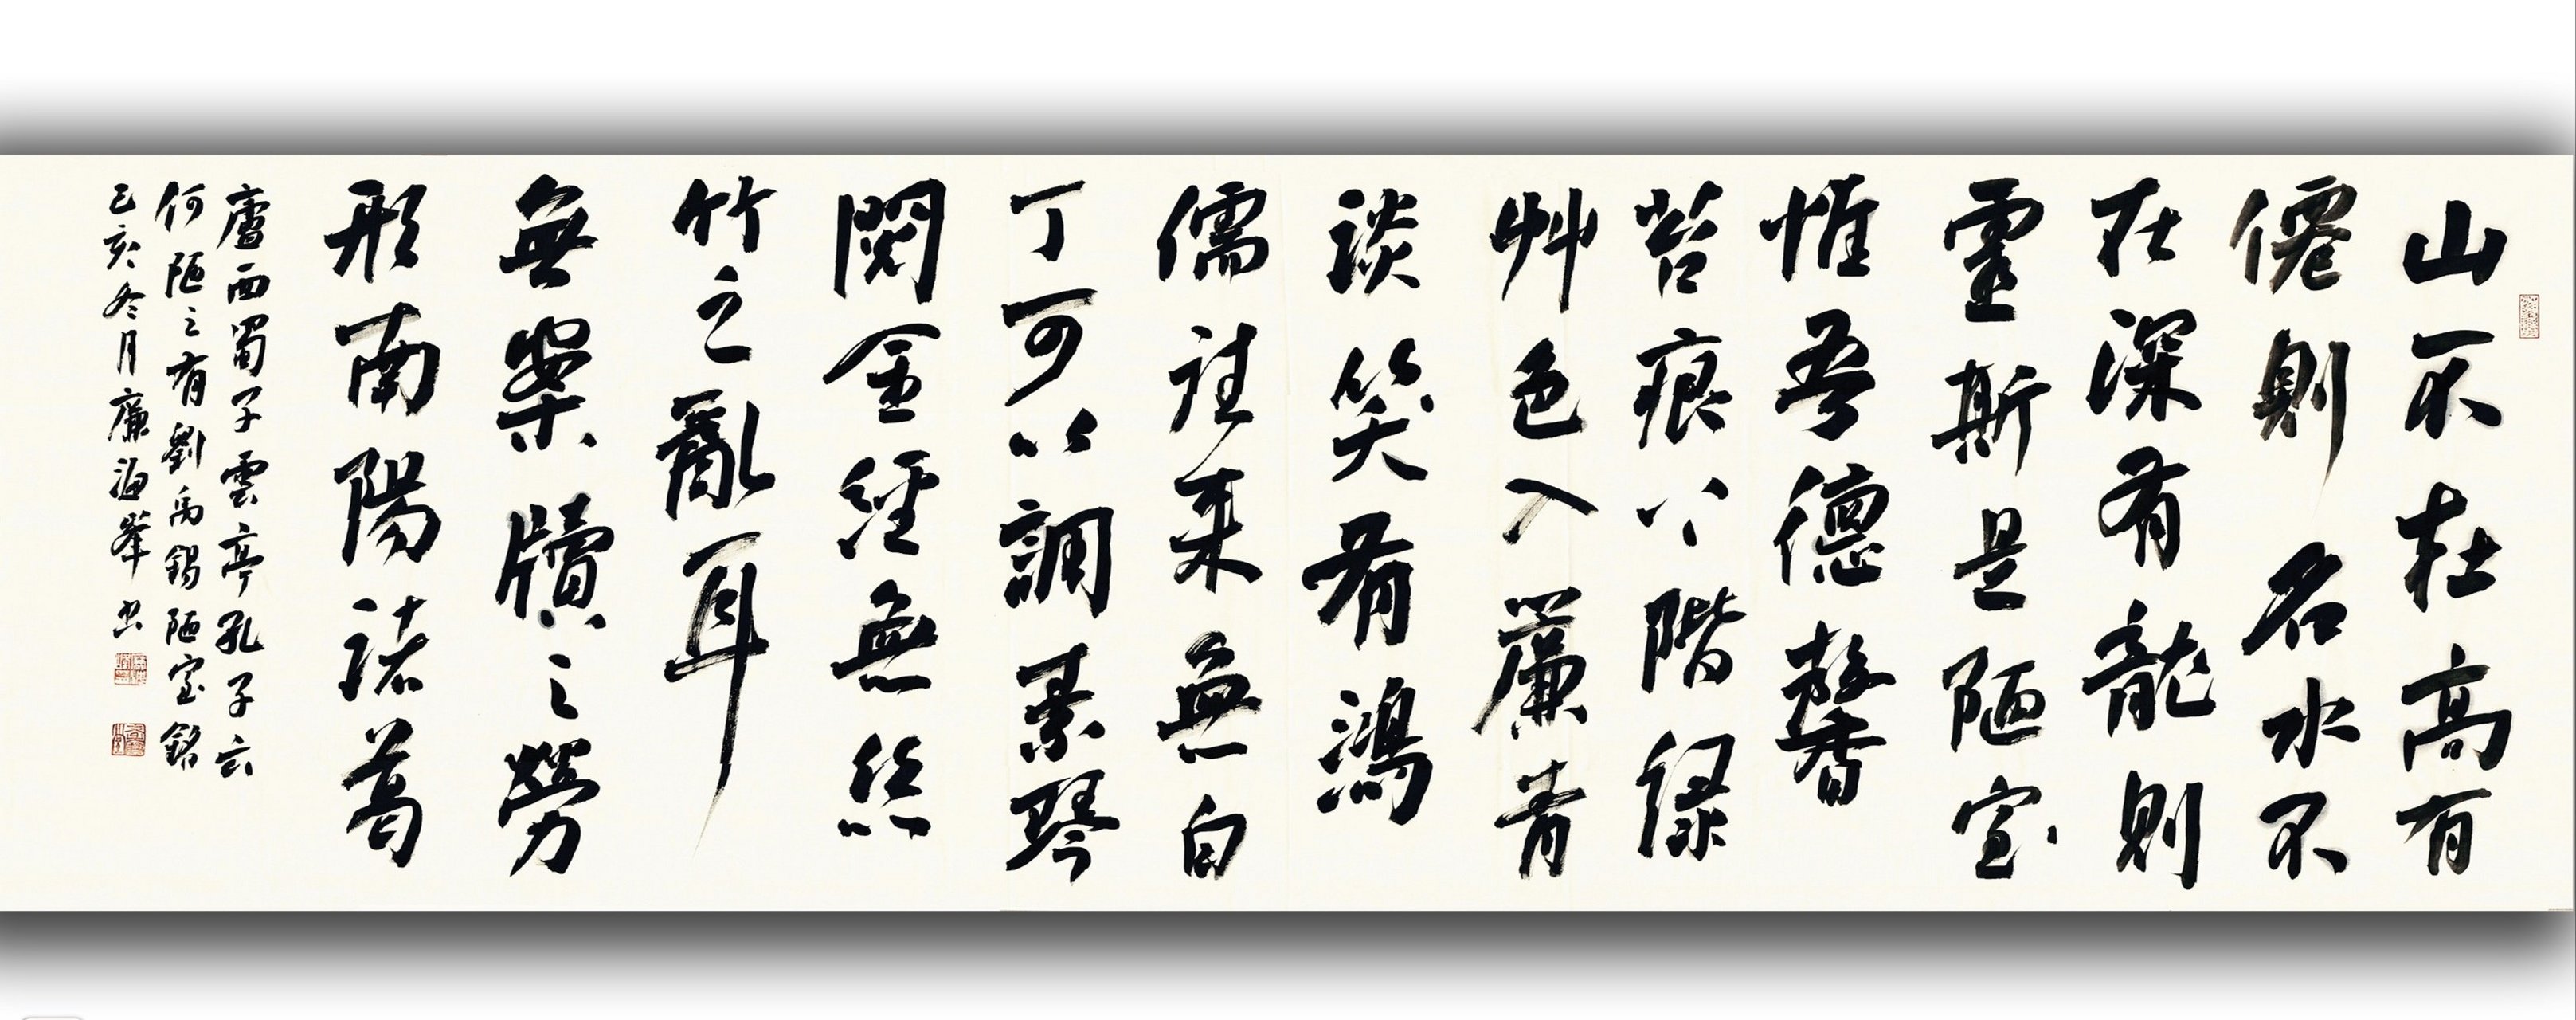 山不在高有
僊則名水不
在深有龍則
靈斯是陋室
惟吾德馨
苔痕上階綠
艸色入簾青
談笑有鴻
儒往来無白
丁可以調素琴
閱金經無絲
竹之亂耳
無案牘之勞
形南陽諸葛
廬西蜀子雲亭孔子云
何陋之有劉禹錫陋室銘
己亥冬月廉海峯书